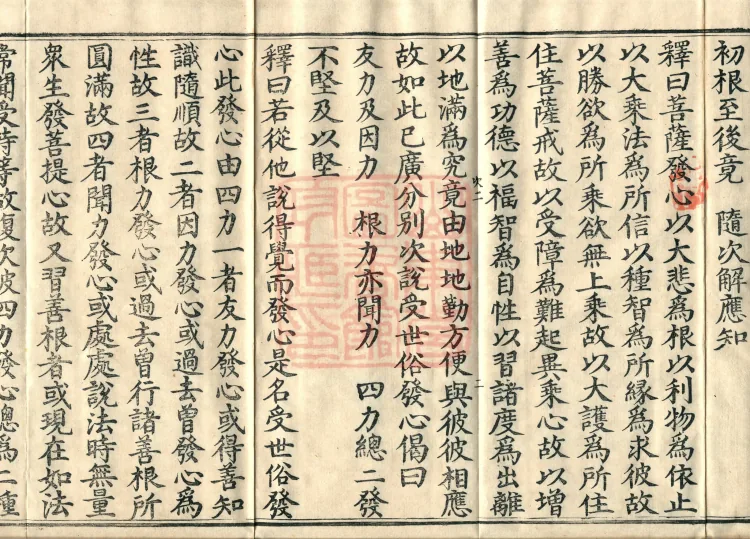 初根至後竟　隨次解應知
釋曰菩薩發心以大悲爲根以利物爲依止
以大乘法爲所信以種智爲所緣爲求彼故
以勝欲爲所乘欲無上乘故以大護爲所住
住菩薩戒故以受障爲難起異乘心故以增
善爲功德以福智爲自性以習諸度爲出離
以地滿爲究竟由地地勤方便與彼彼相應
故如此已廣分別次說受世俗發心偈曰
友力及因力　根力亦聞力　四力總二發
不堅及以堅
釋曰若從他說得覺而發心是名受世俗發
心此發心由四力一者友力發心或得善知
識隨順故二者因力發心或過去曾發心爲
性故三者根力發心或過去曾行諸善根所
圓滿故四者聞力發心或處處說法時無量
衆生發菩提心故又習善根者或現在如法
常聞受持等故復次彼四力發心總爲二種